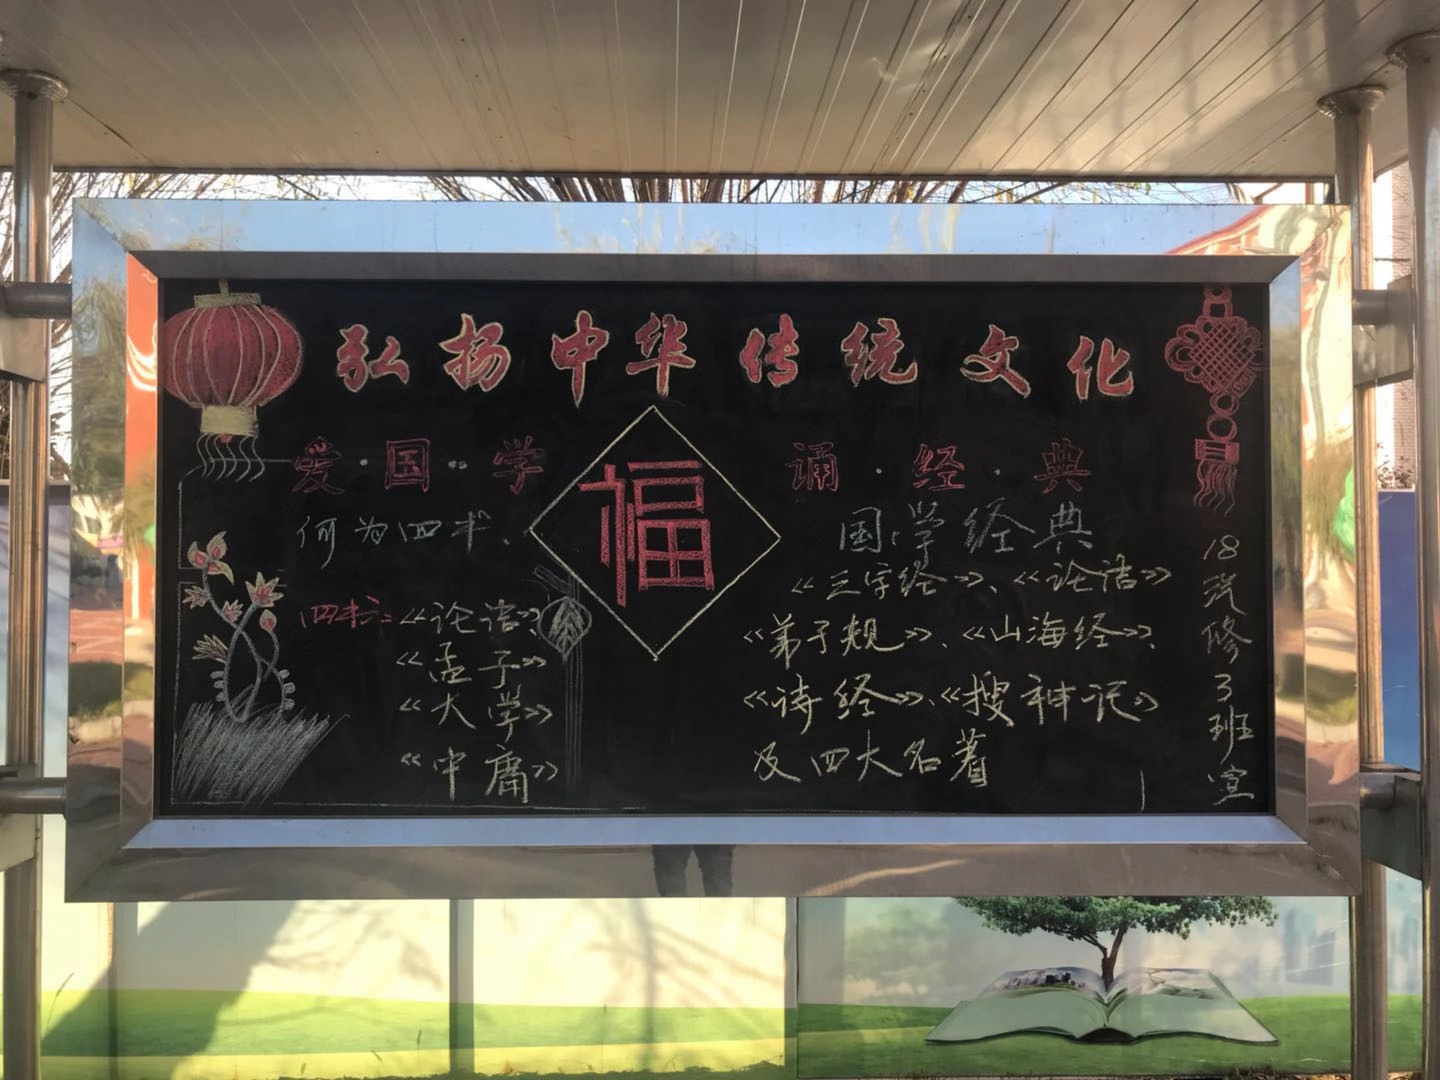 弘扬中华传统文化
爱·国··学
诵·经·典
福
何为四书、
四书：《论语》、
《孟子》
《大学》
《中庸》
国学经典
《三字经》、《论语》
《弟子规》、《山海经》、
《诗经》、《搜神记》
及四大名著
18汽修3班宣